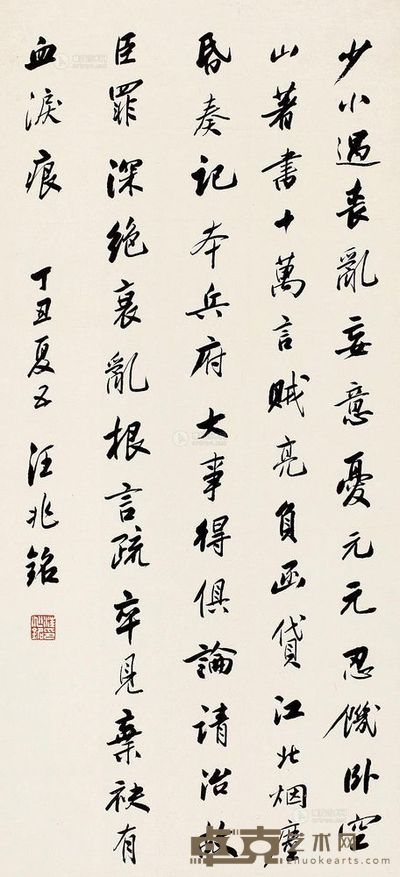 少小遇喪亂妄意憂元元忍饑卧空
山著書十萬言賊亮負函貸江北烟塵
昏奏記本兵府大事得俱論請治故
臣罪深絕衰亂根言疏卒見棄袂有
血淚痕 丁丑夏五 汪兆銘
卓克艺术网
zhuokearts.com